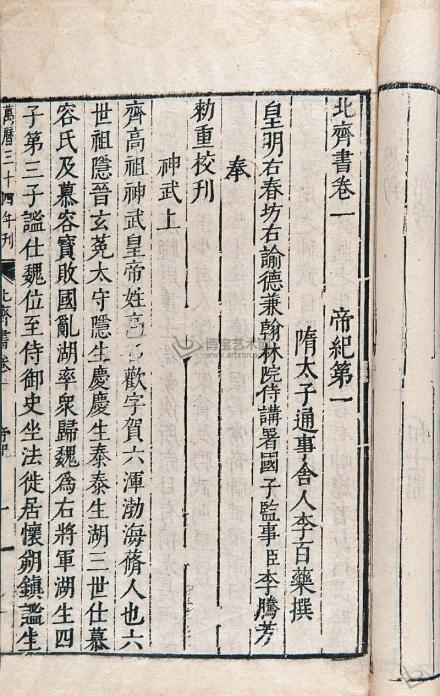 北齊書卷一　帝紀第一
隋太子通事舍人李百藥撰
皇明右春坊右諭德兼翰林院侍講署國子監事臣李騰芳
奉
勑重校刊
神武上
齊高祖神武皇帝姓高名歡字賀六渾渤海蓨人也六
世祖隱晉玄菟太守隱生慶慶生泰泰生湖三世仕慕
容氏及慕容寶敗國亂湖率衆歸魏爲右將軍湖生四
子第三子謐仕魏位至侍御史坐法徙居懷朔鎮謐生
萬曆三十四年刊
北齊書卷一
帝紀
一
博宝艺术网